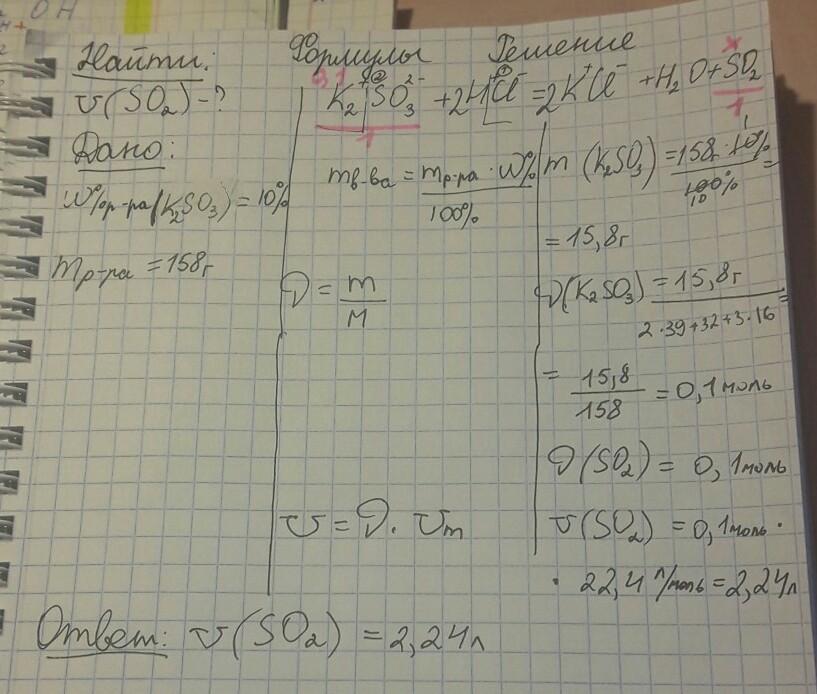 ОН
Найти:
V(SO₂) - ?
Дано:
W%р-ра(K₂SO₃) = 10%
mр-ра = 158г
Формулы
mв-ва = mр-ра · W% / 100%
ν = m / M
V = ν · Vm
Решение
0,1 x
K₂SO₃ + 2HCl = 2KCl + H₂O + SO₂
1 1
m(K₂SO₃) = 158г · 10% / 100% =
= 15,8г
ν(K₂SO₃) = 15,8г / 2·39+32+3·16 =
= 15,8 / 158 = 0,1 моль
ν(SO₂) = 0,1 моль
V(SO₂) = 0,1 моль ·
· 22,4 л/моль = 2,24 л
Ответ: V(SO₂) = 2,24 л